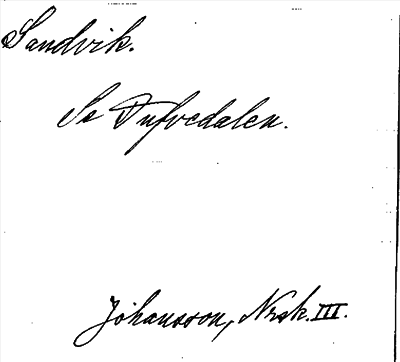 Sandvik.
Se Tufvedalen.
Johansson, Nrsk. III.